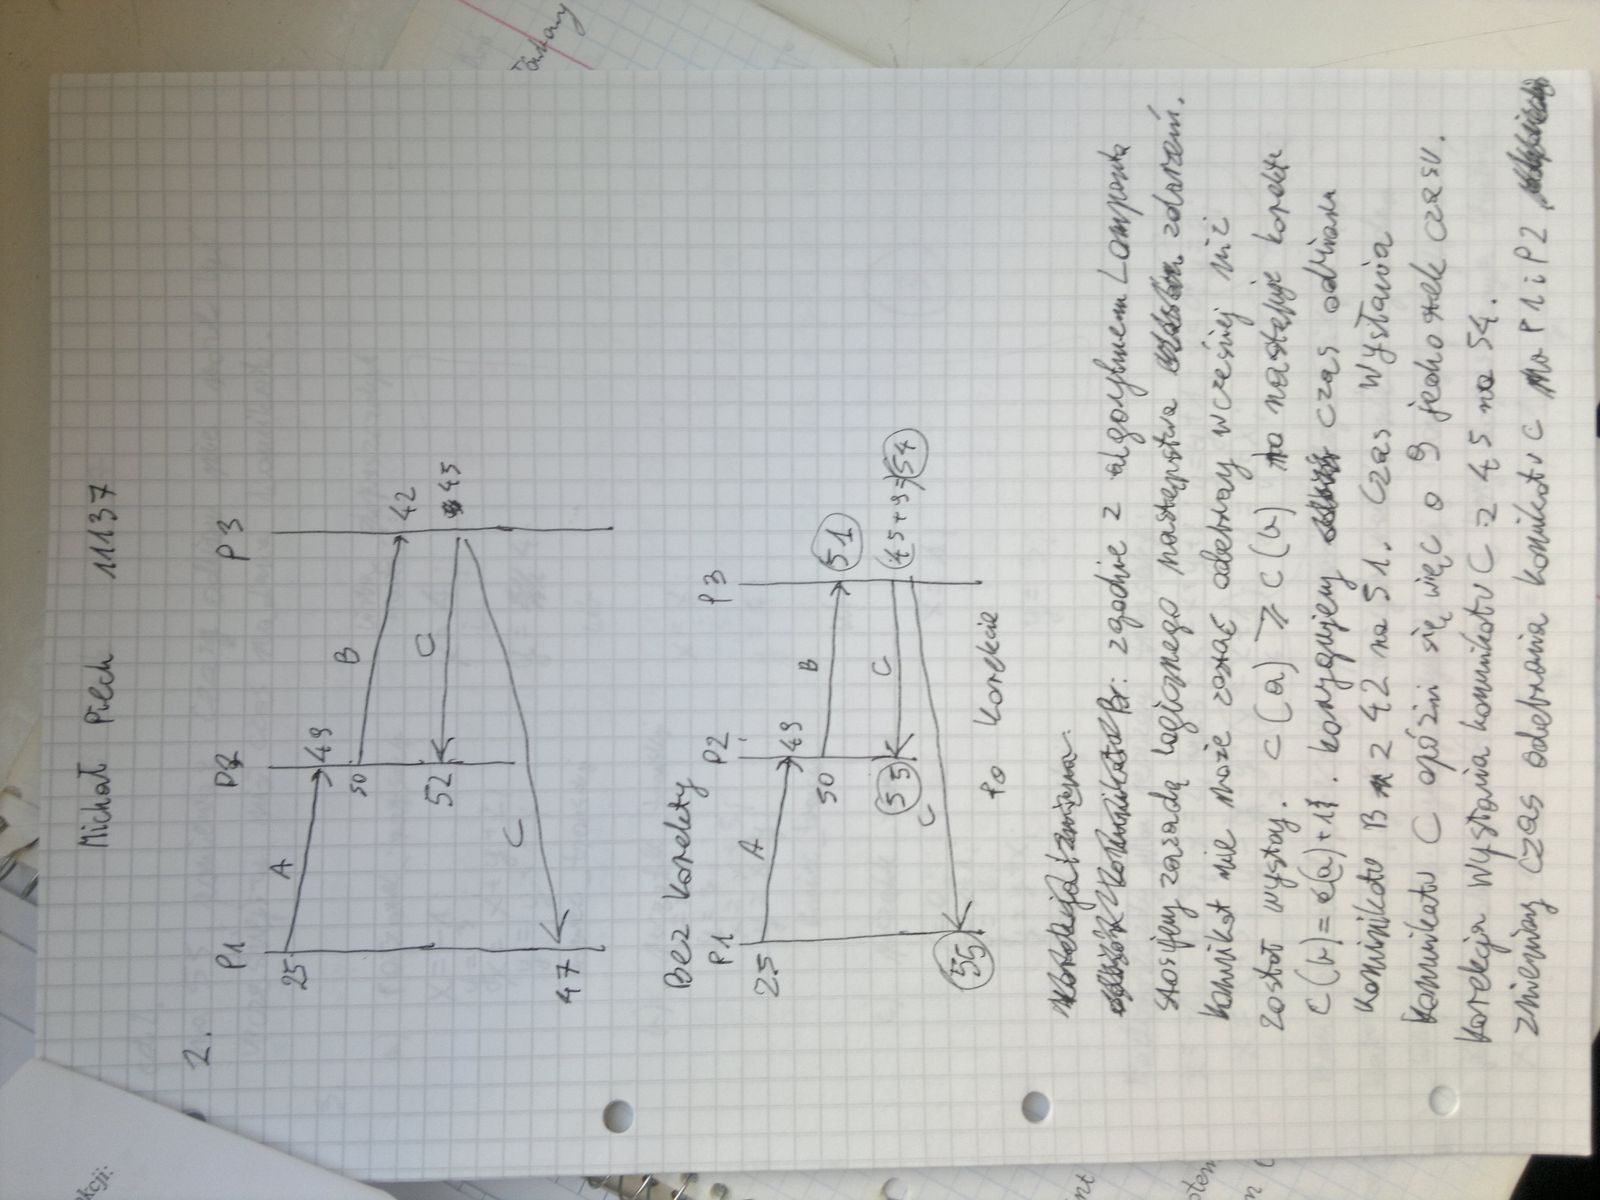 Michał Pilch 11137
2.
P1 P2 P3
25 A 49
50 B 42
52 C 45
C
47
Bez korekty
P1 P2 P3
25 A 49
50 B 51
55 C (45+9=)54
C
55
Po korekcie
zgodnie z algorytmem Lamporta
stosujemy zasadę logicznego następstwa zdarzeń.
komunikat nie może zostać odebrany wcześniej niż
został wysłany. C(a) ≥ C(b) to następuje korekta
C(b) = C(a)+1. korygujemy czas odbioru
komunikatu B z 42 na 51. Czas wysłania
komunikatu C opóźni się więc o 9 jednostek czasu.
korekcja wysłania komunikatu C z 45 na 54.
zmieniamy czas odebrania komikatu C na P1 i P2